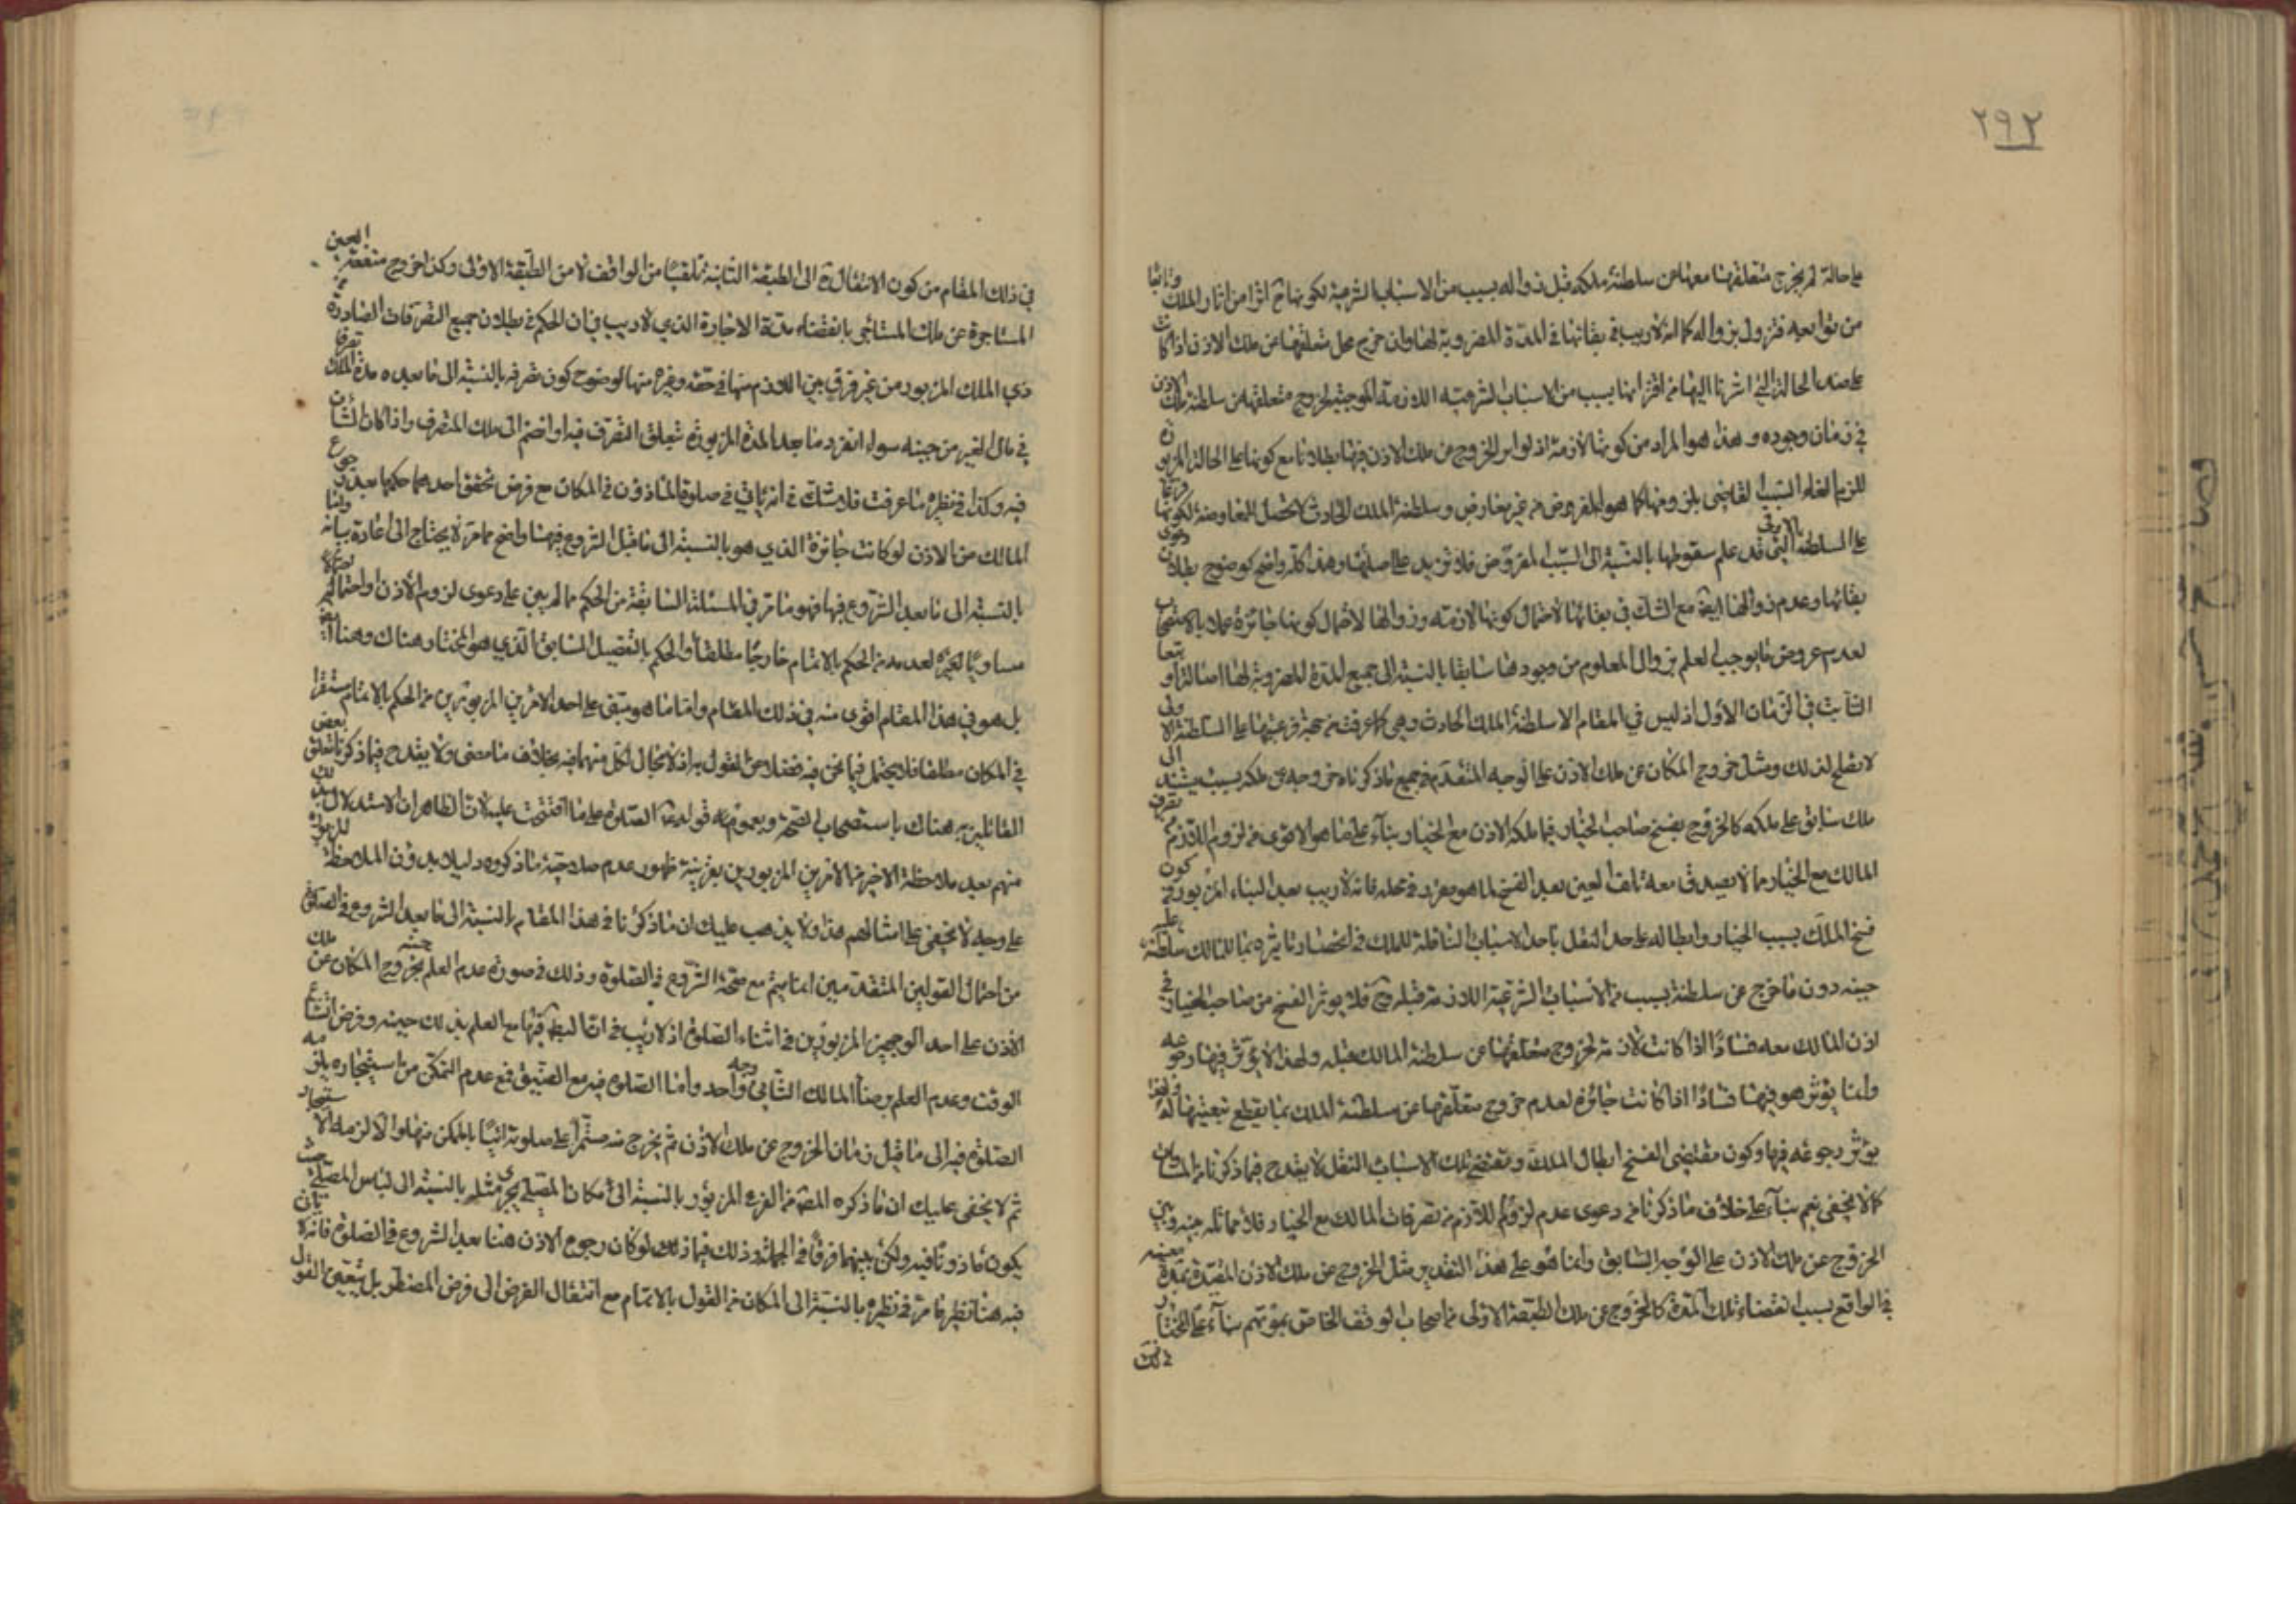 ٢٩٢
على حالة لم يخرج متعلقها معها عن سلطنة ملكه قبل زواله بسبب من الاسباب الشرعية لكونها ح اثرا من اثار الملك وتابعا
من توابعه فتزول بزواله كما انه لا ريب في بقائها في المدة المضروبة لها وان خرج محل متعلقها عن ملك الاذن اذا كانت
على هذه الحالة التي اشرنا اليها من اقترانها بسبب من الاسباب الشرعية اللازمة الموجبة لخروج متعلقها عن سلطنة ملك الاذن
في زمان وجوده وهذا هو المراد من كونها لازمة اذ لو اثر الخروج عن ملك الاذن فيها بطلانا مع كونها على الحالة المزبورة
للزم الغاء السبب القاضي بلزومها كما هو المفروض من غير معارض وسلطنة الملك الحادث لا تحصل للمعاوضة لكونها فرعا
على السلطنة الاولى التي قد علم سقوطها بالنسبة الى السبب المفروض فلا تزيد على اصلها وهذا كله واضح كوضوح بطلان دعوى
بقائها وعدم زوالها ايضا مع الشك في بقائها لاحتمال كونها لازمة وزوالها لاحتمال كونها جائزة عملا بالاستصحاب
لعدم عروض ما يوجب العلم بزوال المعلوم من وجودها سابقا بالنسبة الى جميع المدة المضروبة لها اصالة او تبعا
الثابت في الزمان الاول اذ ليس في المقام الا سلطنة الملك الحادث وهي كما عرفت من جهة فرعيتها على السلطنة الاولى
لا تصلح لذلك ومثل خروج المكان عن ملك الاذن على الوجه المتقدم في جميع ما ذكرناه خروجه عن ملكه بسبب يستند الى
ملك سابق على ملكه كالخروج بفسخ صاحب الخيار فيما ملكه الاذن مع الخيار بناء على ما هو الاقوى من لزوم اللازم من تصرف
المالك مع الخيار مما لا يصدق معه تلف العين بعد الفسخ لما هو مقرر في محله فانه لا ريب بعد البناء المزبور في كون
فسخ الملك بسبب الخيار وابطاله على حد النقل باحد الاسباب الناقلة للملك في اختصاص تاثيره بما للمالك سلطنة عليه
حينه دون ما خرج عن سلطنة بسبب من الاسباب الشرعية اللازمة قبله وح فلا يوثر الفسخ من صاحب الخيار في
اذن المالك معه فسادا اذا كانت لازمة لخروج متعلقها عن سلطنة المالك قبله ولهذا لا يؤثر فيها رجوعه
وانما يؤثر هو فيها فسادا اذا كانت جائزة لعدم خروج متعلقها عن سلطنة الملك بما يقطع تبعيتها له ولهذا
يؤثر رجوعه فيها وكون مقتضى الفسخ ابطال الملك ومقتضى تلك الاسباب النقل لا يقدح فيما ذكرنا من المساوات
كما لا يخفى نعم بناء على خلاف ما ذكرنا من دعوى عدم لزوم اللازم من تصرفات المالك مع الخيار فلا مماثلة بينه وبين
الخروج عن ملك الاذن على الوجه السابق وانما هو على هذا التقدير مثل الخروج عن ملك الاذن المقيدة بمدة معينة
في الواقع بسبب انقضاء تلك المدة كالخروج عن ملك الطبقة الاولى من اصحاب الوقف الخاص بموتهم بناء على المختار
في ذلك
في ذلك المقام من كون الانتقال ح الى الطبقة الثانية تلقيا من الواقف لا من الطبقة الاولى وكذا خروج منفعة العين
المستاجرة عن ملك المستاجر بانقضاء مدة الاجارة الذي لا ريب في ان الحكم في بطلان جميع التصرفات الصادرة من
ذي الملك المزبور من غير فرق بين اللازم منها في حقه وغيره منها لوضوح كون تصرفه بالنسبة الى ما بعد مدة الملك تصرفا
في مال الغير من حينه سواء انفرد ما بعد المدة المزبورة بتعلق التصرف فيه او انضم الى ملك المتصرف واذا كان الشان
فيه وكذا في نظيره ما عرفت فلا شك في انه ياتي في صلوة الماذون في المكان مع فرض تحقق احدهما حكمها بعد رجوع
المالك من الاذن لو كانت جائزة الذي هو بالنسبة الى ما قبل الشروع فيها واضح مما مر لا يحتاج الى اعادة بيانه واما
بالنسبة الى ما بعد الشروع فيها فهو ما مر في المسئلة السابقة من الحكم ما لم يبن على دعوى لزوم الاذن واحتماله
مساويا لغيره لعدمه من الحكم بالاتمام خارجا مطلقا والحكم بالتفصيل السابق الذي هو المختار هناك وهنا ايضا
بل هو في هذا المقام اقوى منه في ذلك المقام واما ما هو مبتنى على احد الامرين المزبورين من الحكم بالاتمام مستقرا
في المكان مطلقا فلا يحتمل فيما نحن فيه فضلا عن القول به اذ لا مجال لكل منهما فيه بخلاف ما مضى ولا يقدح فيما ذكرنا تعلق بعض
القائلين به هناك باستصحاب الصحة وبعموم قوله الصلوة على ما افتتحت عليه لان الظاهر ان الاستدلال بذلك
منهم بعد ملاحظة الاخير من الامرين المزبورين بقرينة ظهور عدم صلاحية ما ذكروه دليلا بدون الملاحظة المزبورة
على وجه لا يخفى على امثالهم هذا ولا يذهب عليك ان ما ذكرنا في هذا المقام بالنسبة الى ما بعد الشروع في الصلوة
من احتمال القولين المتقدمين انما يتم مع صحة الشروع في الصلوة وذلك في صورة عدم العلم بخروج المكان عن ملك
الاذن على احد الوجهين المزبورين في اثناء الصلوة اذ لا ريب في انه لبطلانها مع العلم بذلك حينه وفرض اتساع
الوقت وعدم العلم برضا المالك الثاني وجه واحد واما الصلوة فيه مع الضيق فمع عدم التمكن من استيجاره يلزمه
الصلوة فيه الى ما قبل زمان الخروج عن ملك الاذن ثم يخرج منه مستمرا على صلوته اتيا بالممكن منها والا لزمه الاستيجار
ثم لا يخفى عليك ان ما ذكره المص من الفرع المزبور بالنسبة الى مكان المصلي يجري مثله بالنسبة الى لباس المصلي حيث
يكون ماذونا فيه ولكن بينهما فرقا في الجملة وذلك فيما لو كان رجوع الاذن هنا بعد الشروع في الصلوة فانه لا ياتي
فيه هنا نظير ما مر في نظيره بالنسبة الى المكان من القول بالاتمام مع انتقال الفرض الى فرض المضطر بل يتعين القول